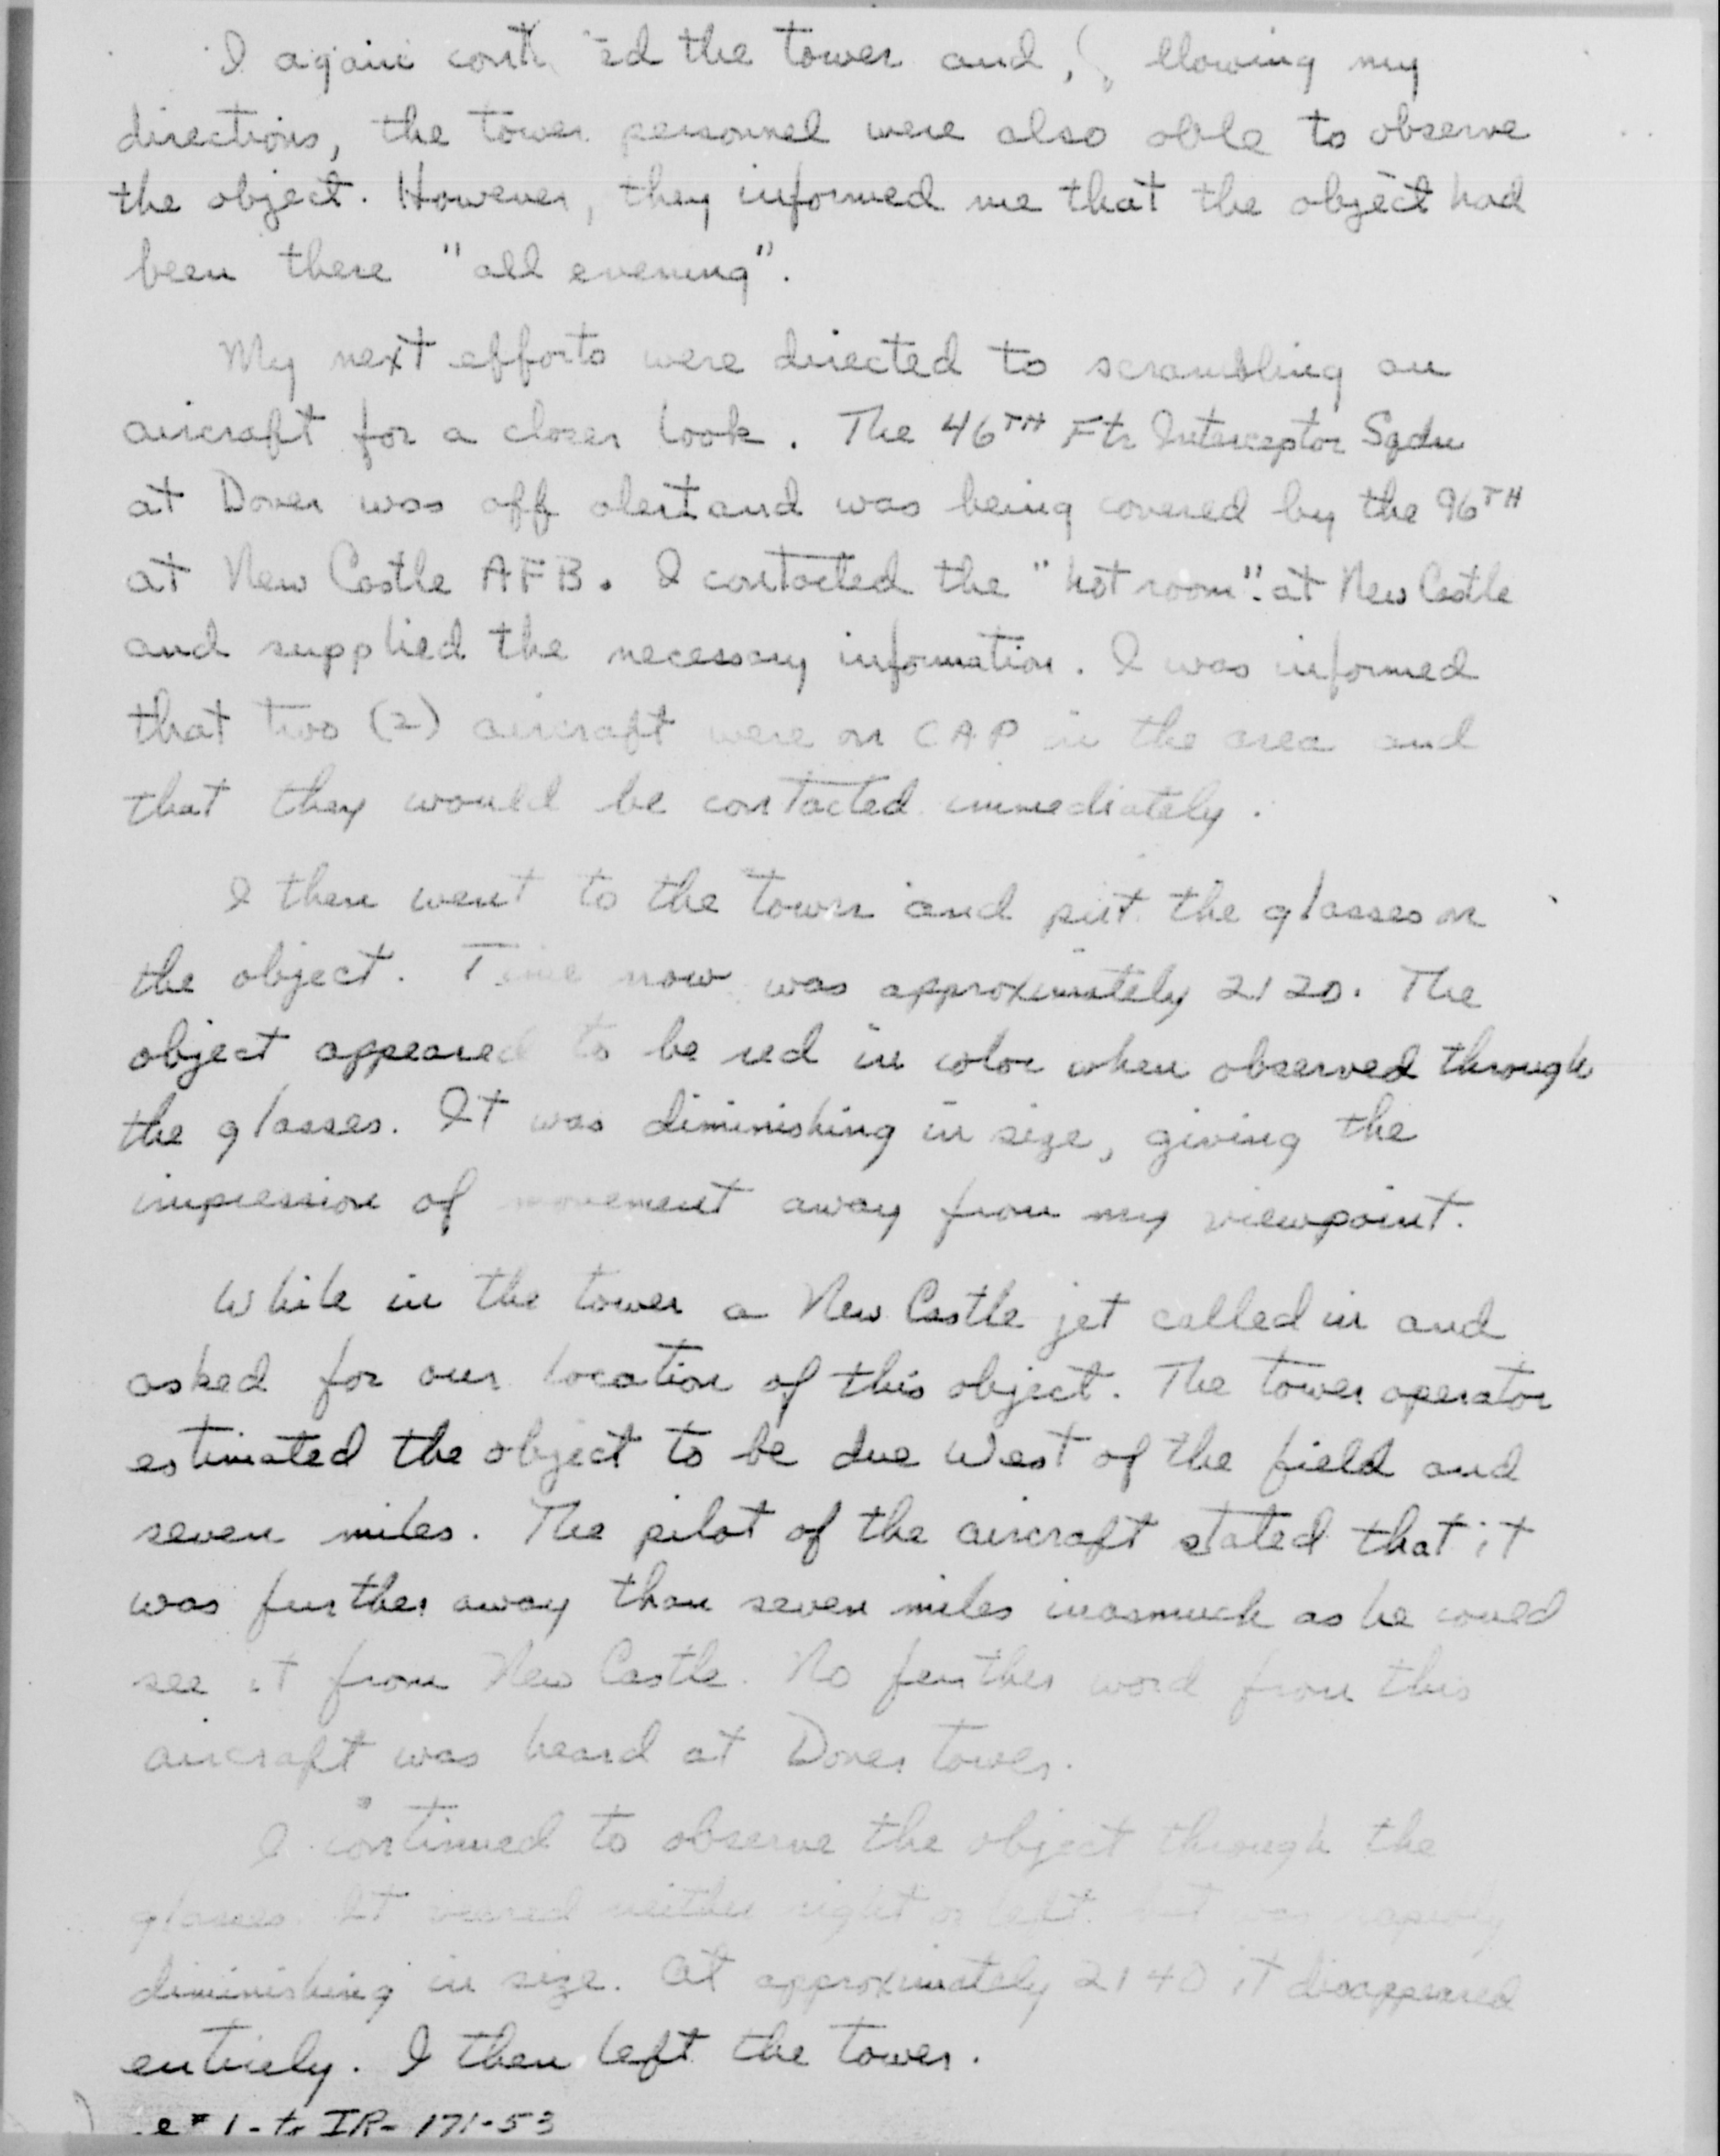 I again cont ed the tower and, llowing my
directions, the tower personnel were also able to observe
the object. However, they informed me that the object had
been there "all evening".
My next efforts were directed to scrambling an
aircraft for a closer look. The 46TH Ftr Interceptor Sqdn
at Dover was off alert and was being covered by the 96TH
at New Castle AFB. I contacted the "hot room" at New Castle
and supplied the necessary information. I was informed
that two (2) aircraft were on CAP in the area and
that they would be contacted immediately.
I then went to the tower and put the glasses on
the object. Time now was approximately 2120. The
object appeared to be red in color when observed through
the glasses. It was diminishing in size, giving the
impression of movement away from my viewpoint.
While in the tower a New Castle jet called in and
asked for our location of this object. The tower operator
estimated the object to be due West of the field and
seven miles. The pilot of the aircraft stated that it
was further away than seven miles inasmuch as he could
see it from New Castle. No further word from this
aircraft was heard at Dover tower.
I continued to observe the object through the
glasses. It veered neither right or left but was rapidly
diminishing in size. At approximately 2140 it disappeared
entirely. I then left the tower.
e# 1 - to IR- 171-53